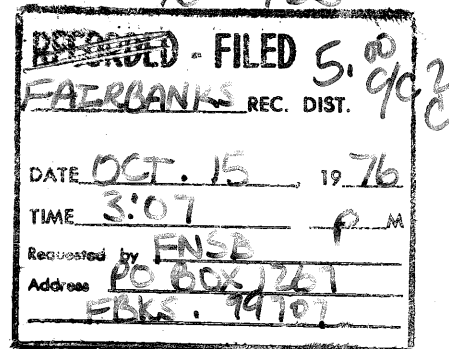 RECORDED - FILED 5.00
FAIRBANKS REC. DIST.
DATE OCT. 15 1976
TIME 3:07 P M
Requested by FNSB
Address PO BOX 1267
FBKS. 99707